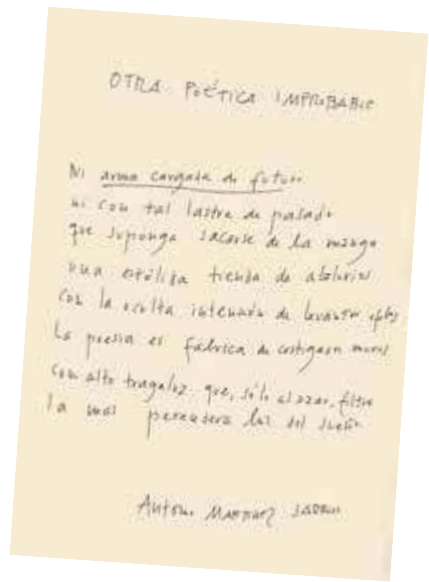 OTRA POÉTICA IMPROBABLE
Ni arma cargada de futuro
ni con tal lastre de pasado
que suponga sacarse de la manga
una tienda de abalorios
con la oculta de levantar
La poesía es fábrica de muros
con alto tragaluz que, sólo al azar, filtra
la más luz del sueño
Antonio Martínez